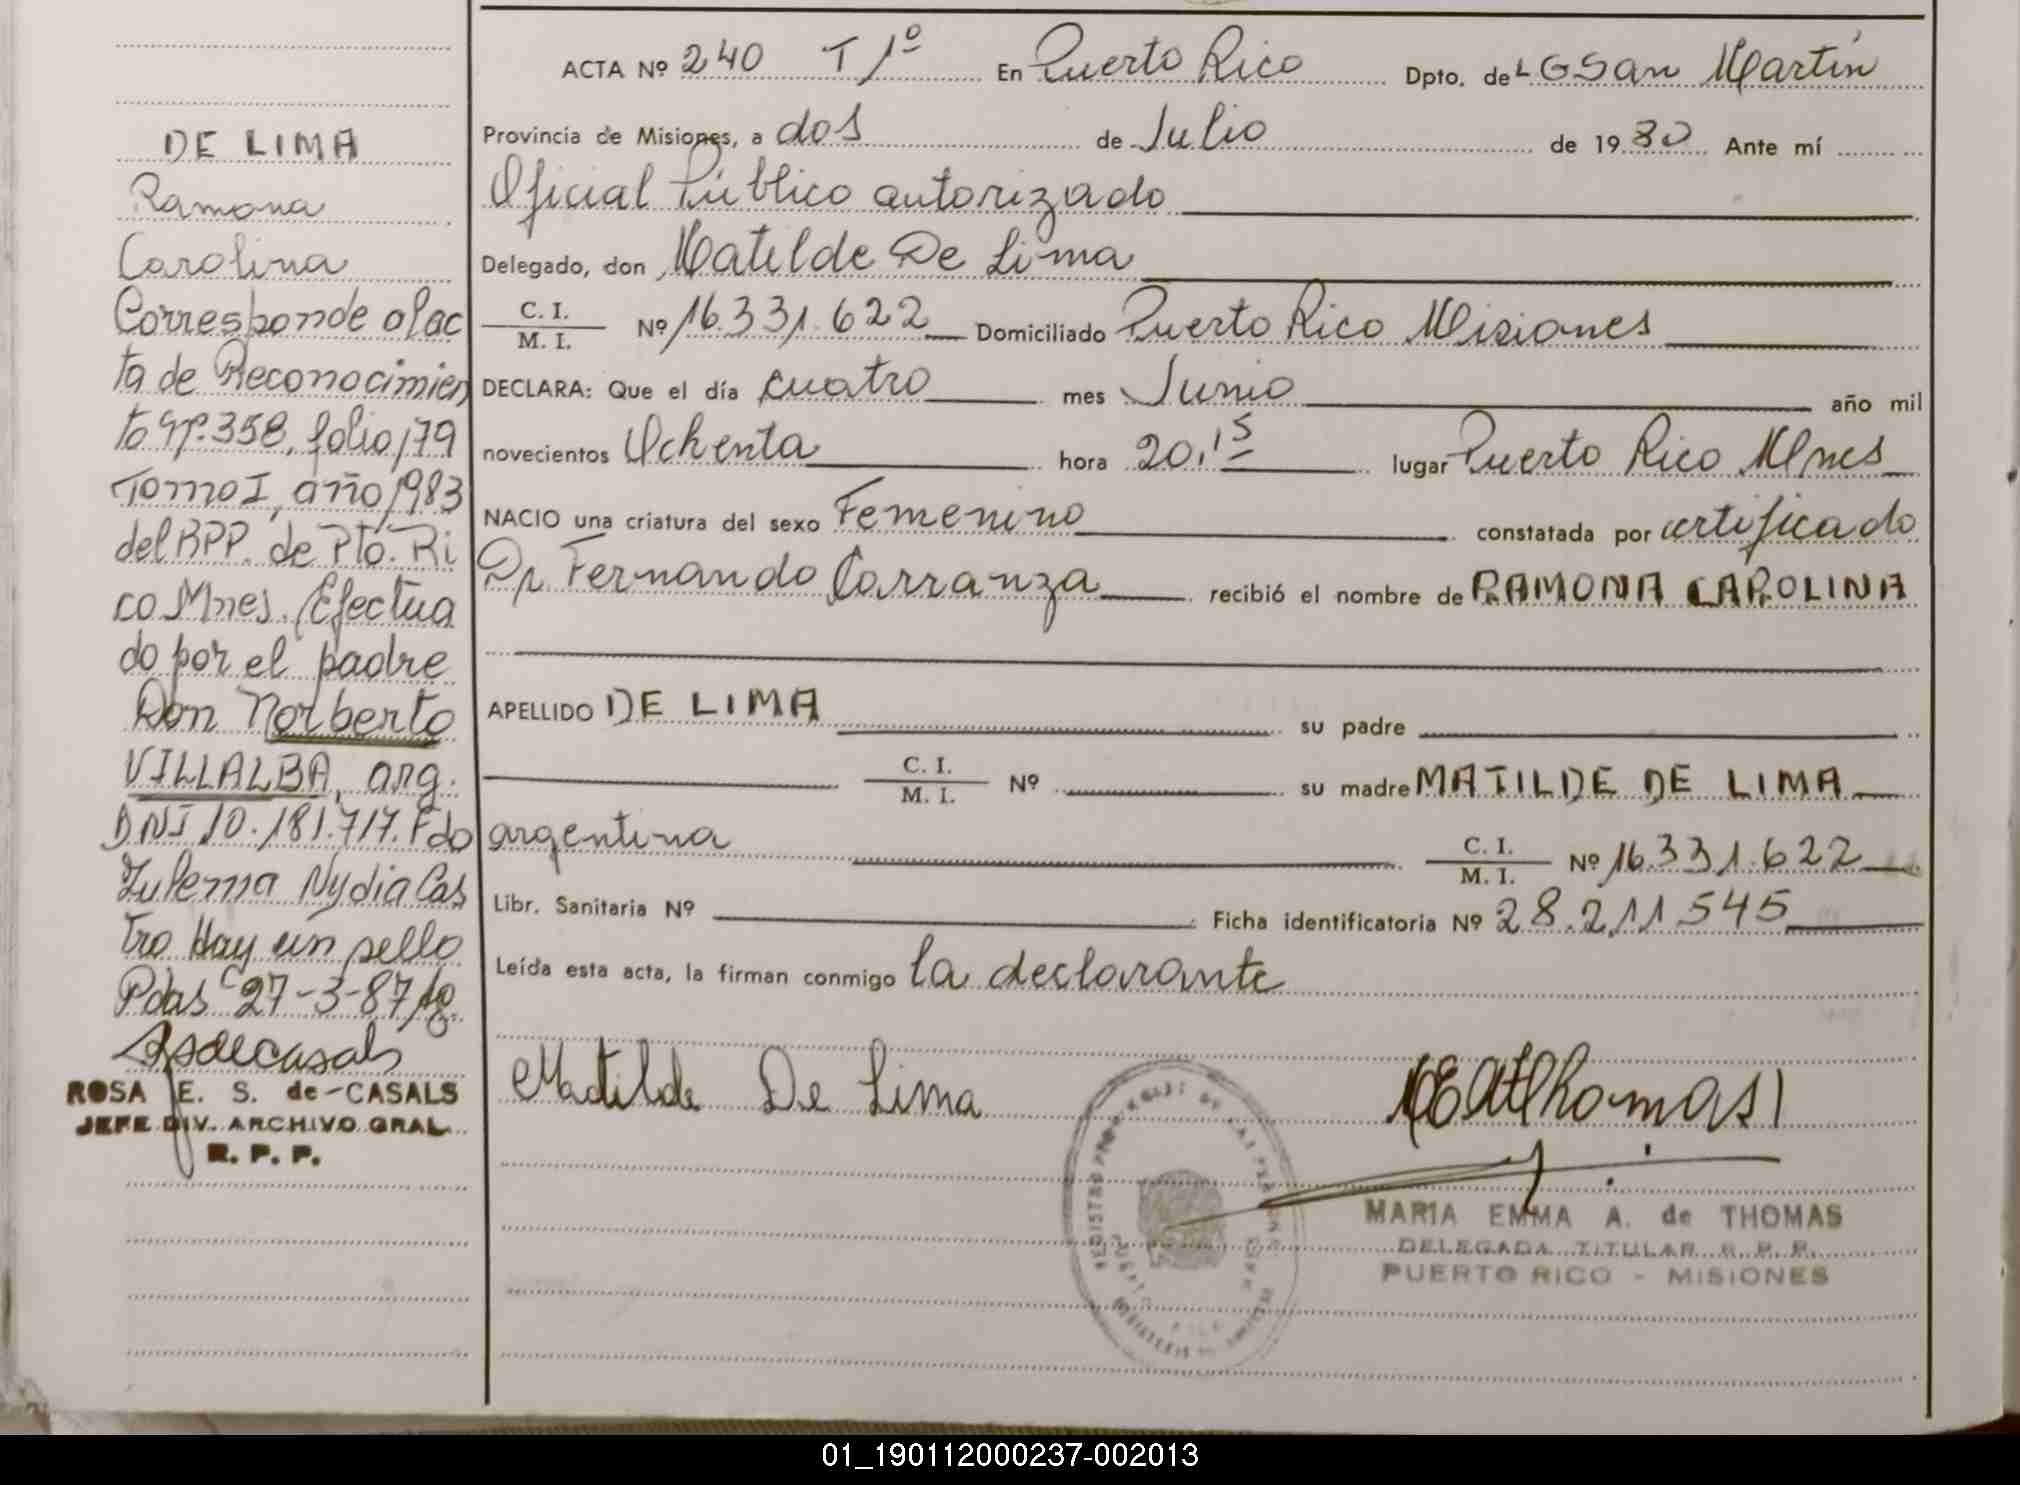 DE LIMA
Ramona
Carolina
Corresponde al ac
ta de Reconocimien
to Nº.358, folio 179
Tomo I, año 1983
del RPP. de Pto. Ri
co Mnes. Efectua
do por el padre
Don Norberto
VILLALBA, arg.
DNI 10.181.717. Fdo
Zulema Nydia Cas
tro Hay un sello
Pdas 27-3-87
ROSA E. S. de CASALS
JEFE DIV. ARCHIVO GRAL.
R. P. P.
ACTA Nº 240 T 1º En Puerto Rico Dpto. de L G San Martín
Provincia de Misiones, a dos de Julio de 1980 Ante mí
Oficial Público autorizado
Delegado, don Matilde De Lima
C. I. / M. I. Nº 16.331.622 Domiciliado Puerto Rico Misiones
DECLARA: Que el día cuatro mes Junio año mil
novecientos Ochenta hora 20,15 lugar Puerto Rico Mnes
NACIO una criatura del sexo Femenino constatada por certificado
Dr Fernando Carranza recibió el nombre de RAMONA CAROLINA
APELLIDO DE LIMA su padre
C. I. / M. I. Nº su madre MATILDE DE LIMA
argentina C. I. / M. I. Nº 16.331.622
Libr. Sanitaria Nº Ficha identificatoria Nº 28.211.545
Leída esta acta, la firman conmigo la declarante
Matilde De Lima
MARIA EMMA A. de THOMAS
DELEGADA TITULAR R. P. P.
PUERTO RICO - MISIONES
01_190112000237-002013